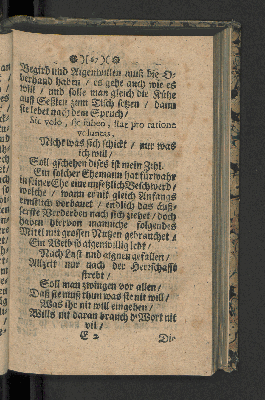 67
Begird und Aigenwillen muß die O-
verhand haben / es gehe auch wie es
will / und solle man gleich die Kühe
auff Sesslen zum Tisch setzen / dann
sie lebet nach dem Spruch /
Sic volo, sic jubeo, stat pro ratione
voluntas.
Nicht was sich schickt / nur was
ich will /
Soll gschehen dises ist mein Zihl.
Ein solcher Ehemann hat fürwahr
in seiner Ehe eine unsetzlich Beschwerd /
welche / wann er nit gleich Anfangs
ernstlich vorbauet / endlich das äus-
serste Verderben nach sich ziehet / doch
haben hiervon manniche folgendes
Mittel mit grossen Nutzen gebrauchet /
Ein Weib so aigenwillig lebt /
Nach Lust und aignen gefallen /
Allzeit nur nach der Herrschafft
strebt /
Soll man zwingen vor allen /
Daß sie muß thun was sie nit will /
Was ihr nit will eingehen /
Wills nit daran brauch der Wort nit
vil /
E 2
Die